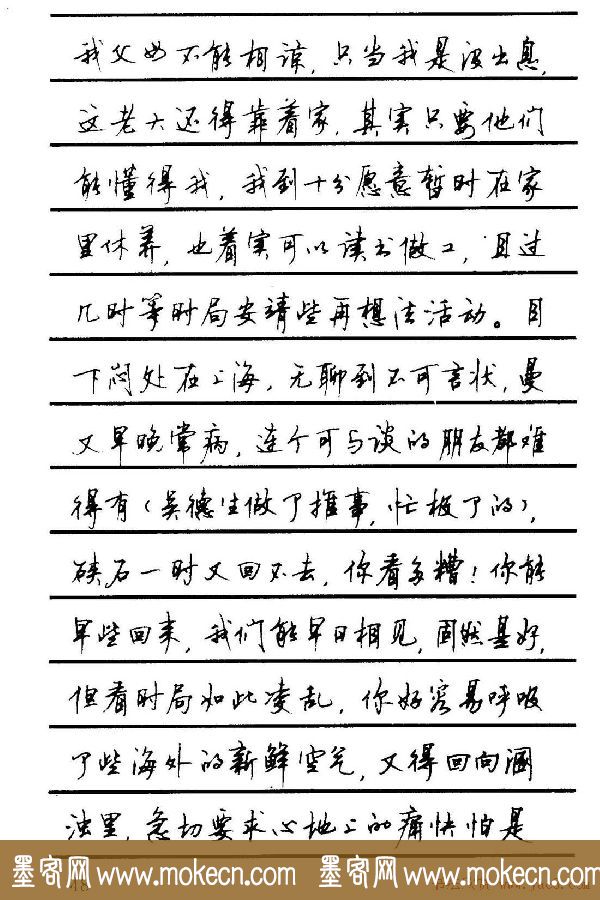 我父母不能相谅，只当我是没出息，
这老大还得靠着家，其实只要他们
能懂得我，我到十分愿意暂时在家
里休养，也着实可以读书做工，且过
几时等时局安靖些再想法活动。目
下闷处在上海，无聊到不可言状，曼
又早晚常病，连个可与谈的朋友都难
得有（吴德生做了推事，忙极了的），
硖石一时又回不去，你看多糟！你能
早些回来，我们能早日相见，固然甚好，
但看时局如此凌乱，你好容易呼吸
了些海外的新鲜空气，又得回向溷
浊里，急切要求心地上的痛快怕是
墨客网www.mokecn.com 墨客网www.mokecn.com
48